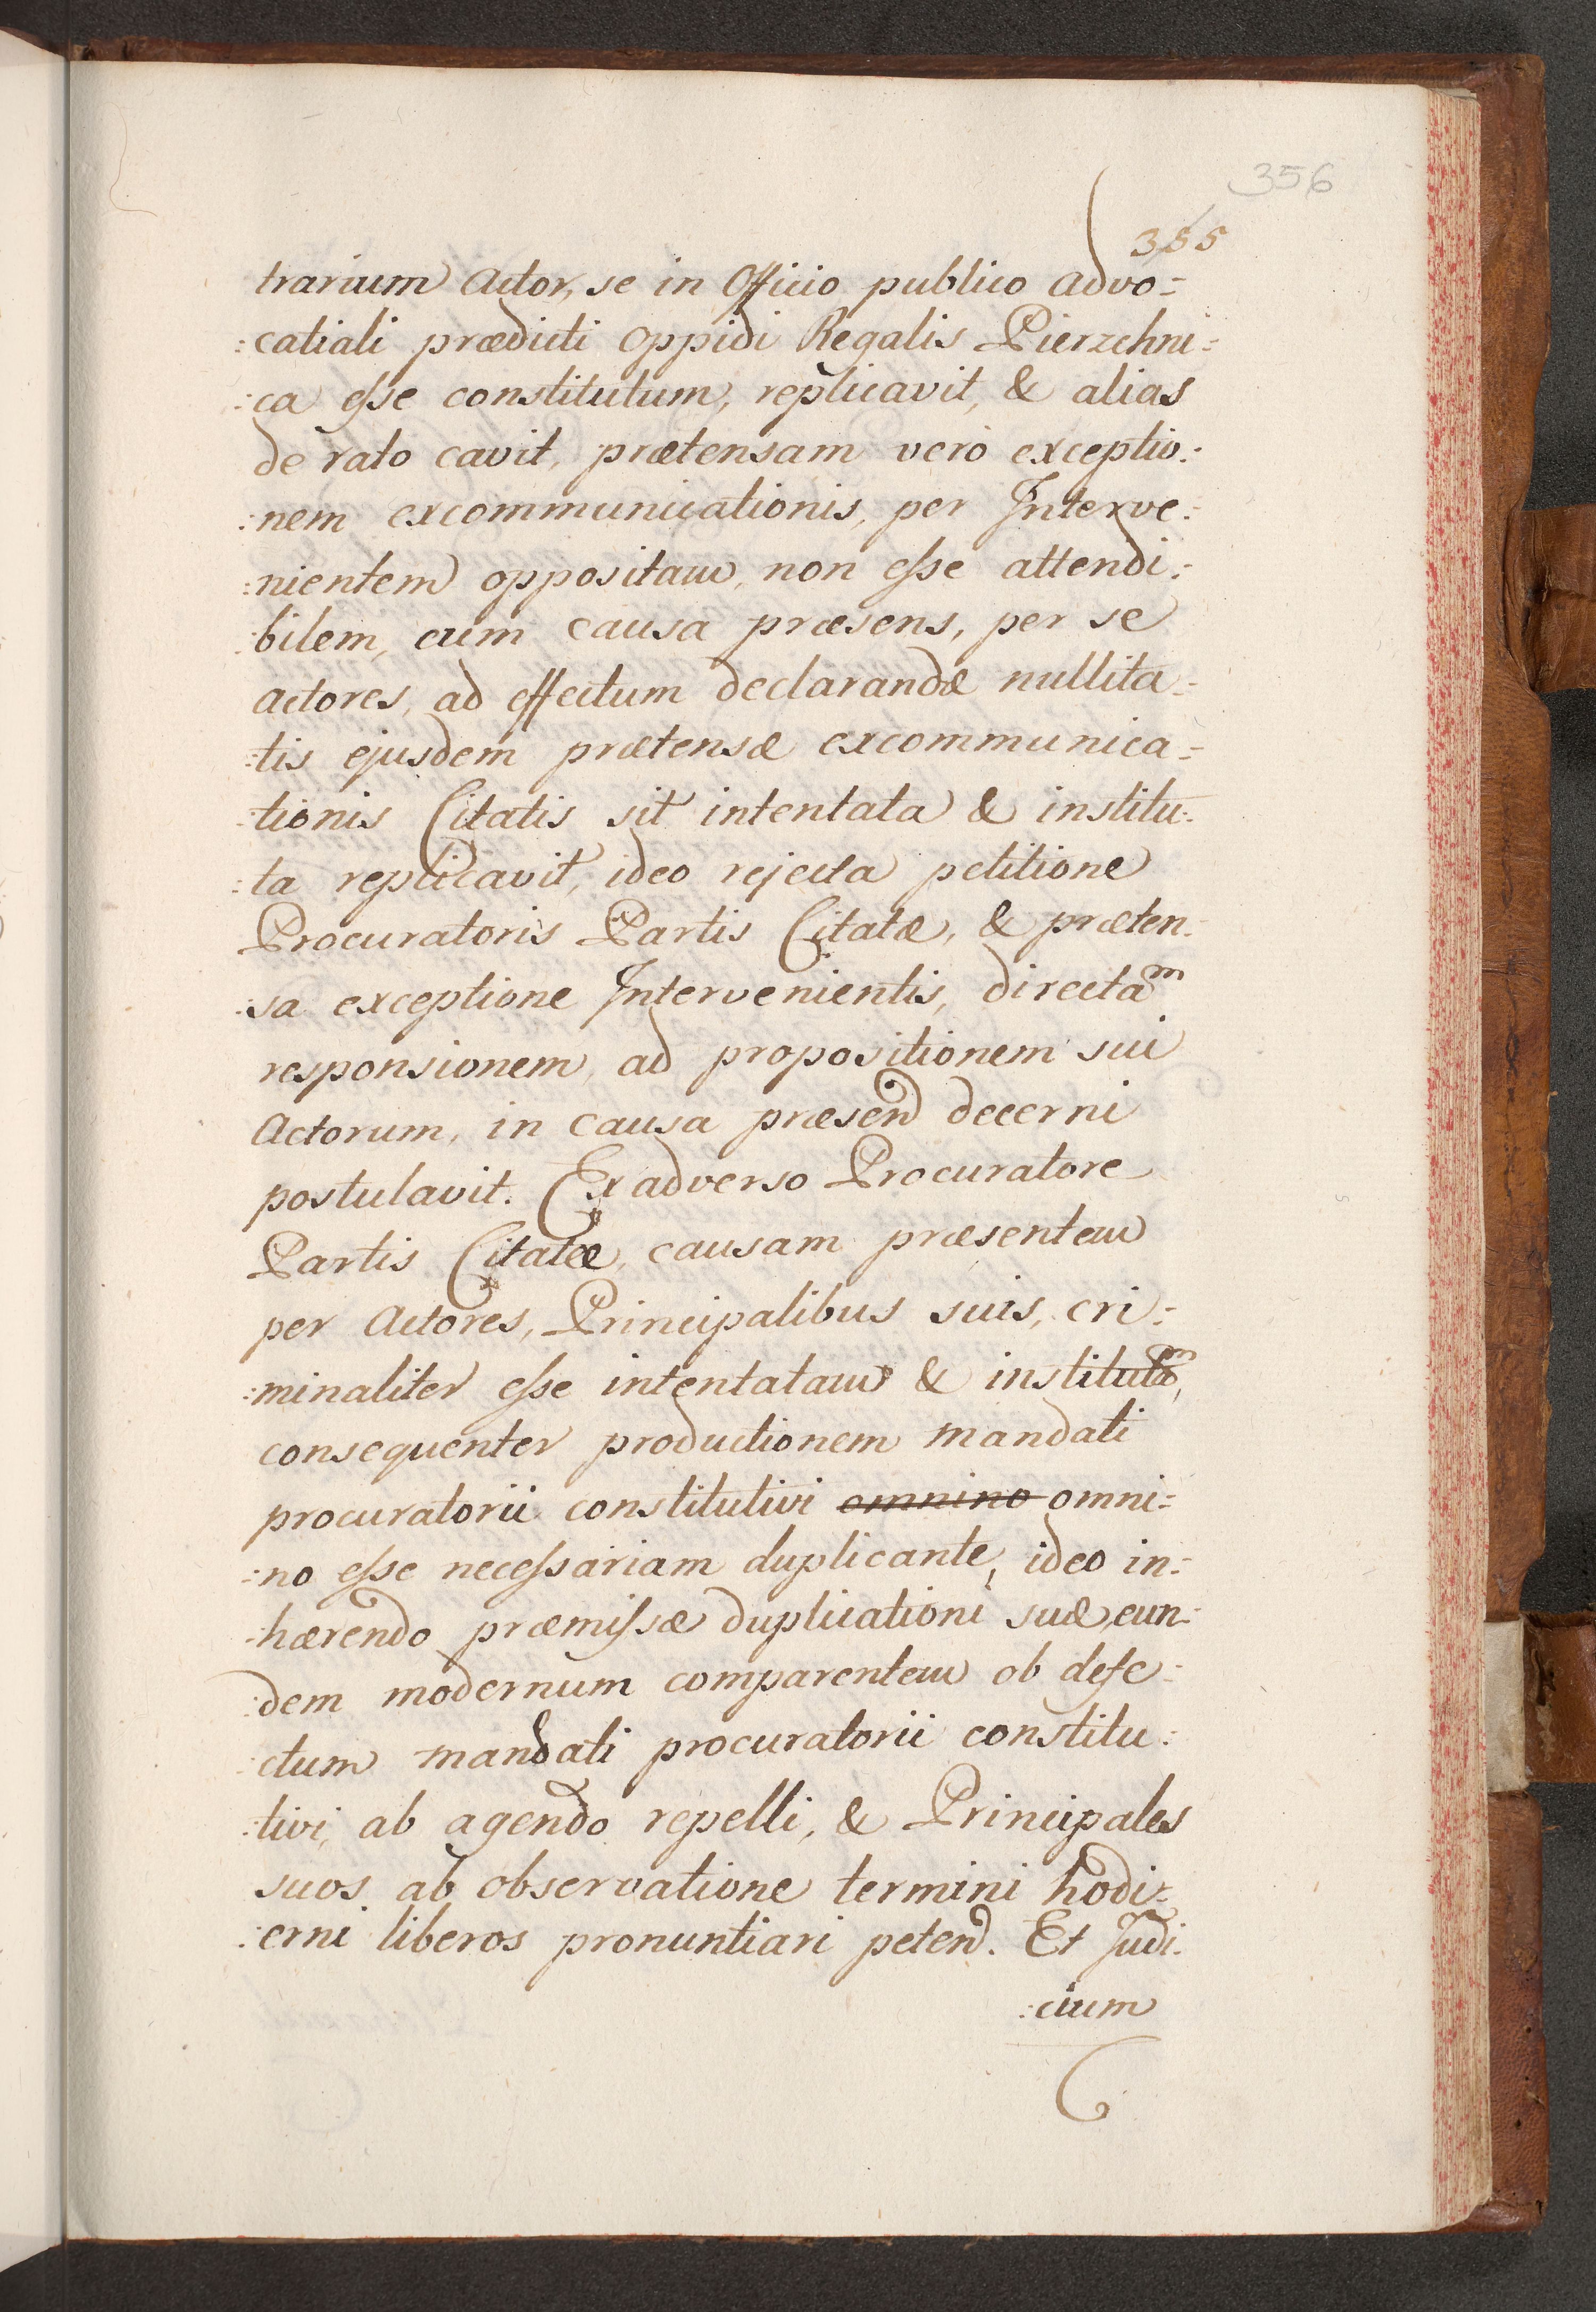 356
355
trarium Actor, se in Officio publico advo=
:catiali prædicti Oppidi Regalis Pierzchni=
:ca eſse constitutum, replicavit, & alias
de rato cavit, prætensam verò exceptio:
:nem excommunicationis, per Interve:
:nientem oppositam, non eſse attendi:
:bilem, cum causa præsens, per se
Actores, ad effectum declarandæ nullita=
:tis ejusdem prætensæ excommunica=
:tionis Citatis sit intentata & institu:
:ta replicavit, ideo rejecta petitione
Procuratoris Partis Citatæ, & præten:
:sa exceptione Intervenientis, directaᵐ
responsionem, ad propositionem sui
Actorum, in causa præsend decerni
postulavit. Ex adverso Procuratore
Partis Citatæ, causam præsentem
per Actores, Principalibus suis, cri=
:minaliter eſse intentatam & institutaᵐ,
consequenter productionem mandati
procuratorii constitutivi omnino omni=
:no eſse neceſsariam duplicante, ideo in=
:hærendo præmiſsæ duplicationi suæ, eun=
:dem modernum comparentem ob defe=
:ctum mandati procuratorii constitu:
:tivi, ab agendo repelli, & Principales
suos ab observatione termini hodi=
:erni liberos pronuntiari petend. Et Judi:
:cium